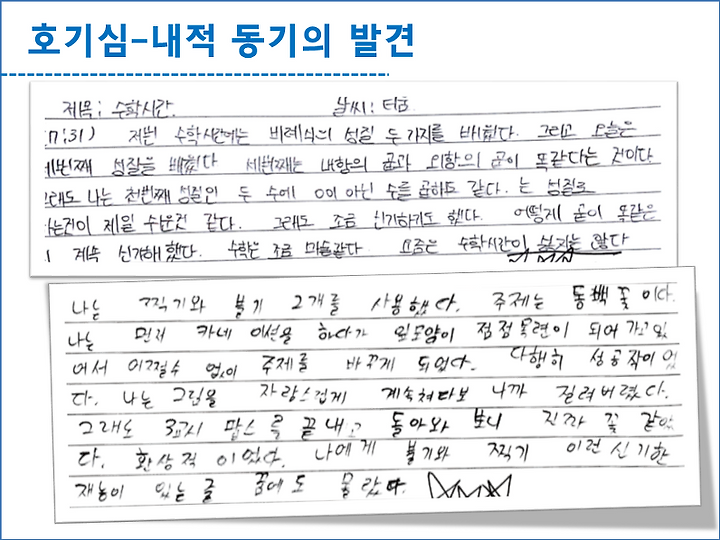 호기심-내적 동기의 발견
제목: 수학시간. 날씨:
7:31) 저번 수학시간에는 비례식의 성질 두가지를 배웠다. 그리고 오늘은
세번째 성질을 배웠다 세번째는 내항의 곱과 외항의 곱이 똑같다는 것이다
그래도 나는 첫번째 성질인 두 수에 0이 아닌 수를 곱하도 같다. 는 성질로
는것이 제일 수운것 같다. 그래도 조금 신기하기도 했다. 어떻게 곱이 똑같은
계속 신기해했다. 수학은 조금 마술같다 요즘은 수학시간이 싫지는 않다
나는 찍기와 불기 2개를 사용했다. 주제는 동백꽃이다.
나는 먼저 카네이션을 하다가 잎모양이 점점목련이 되어가고있
어서 어쩔수 없이 주제를 바꾸게 되었다. 다행히 성공작이었
다. 나는 그림을 자랑스럽게 계속쳐다보니까 질려버렸다.
그래도 3교시 끝내고 돌아와 보니 진짜 꽃 같았
다. 환상적이었다. 나에게 불기와 찍기 이런신기한
재능이 있는줄 꿈에도 몰랐다.